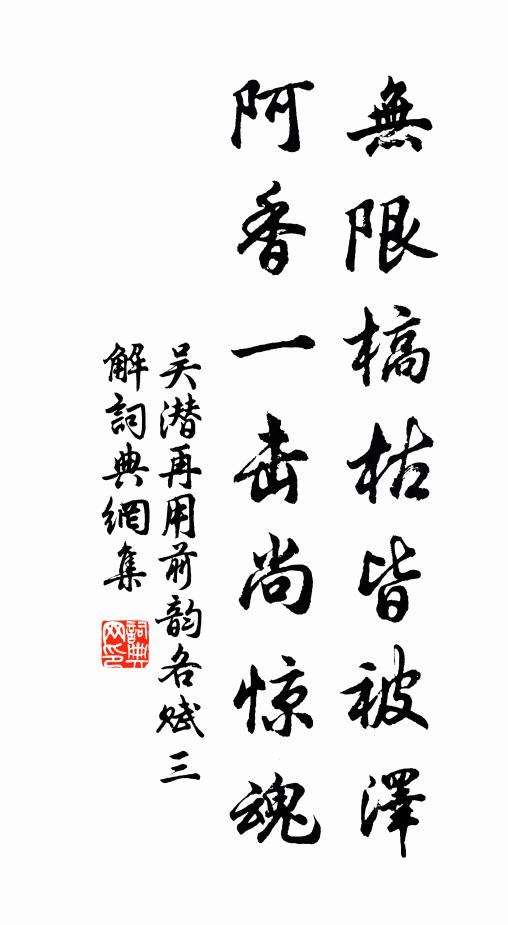 無限槁枯皆被澤
阿香一击尚惊魂
吴潜再用前韵各赋三
解詞典網集
詞典
网印